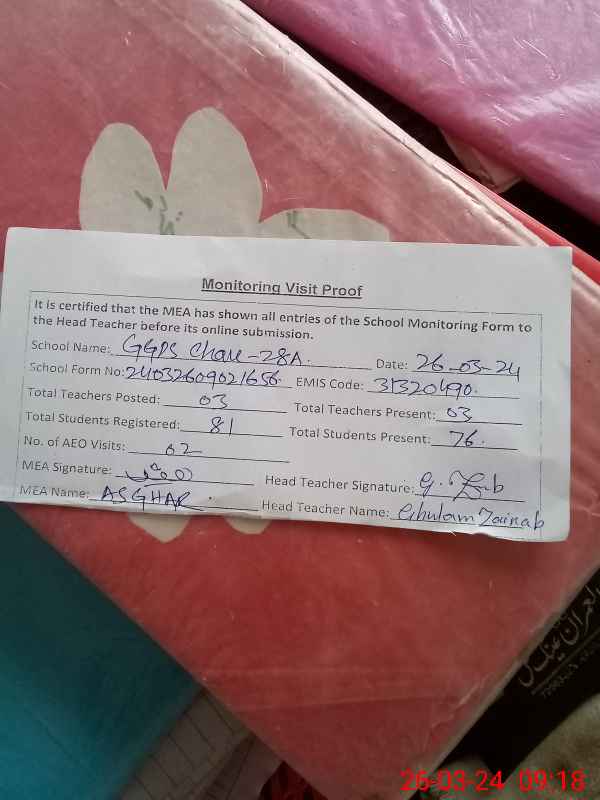 Monitoring Visit Proof
It is certified that the MEA has shown all entries of the School Monitoring Form to
the Head Teacher before its online submission.
School Name: GGPS Chak-28A. Date: 26-03-24
School Form No: 24032609021656. EMIS Code: 31320490.
Total Teachers Posted: 03 Total Teachers Present: 03
Total Students Registered: 81 Total Students Present: 76.
No. of AEO Visits: 02
MEA Signature: Head Teacher Signature: G. Zainab
MEA Name: ASGHAR. Head Teacher Name: Ghulam Zainab
العمران
26-03-24 09:18